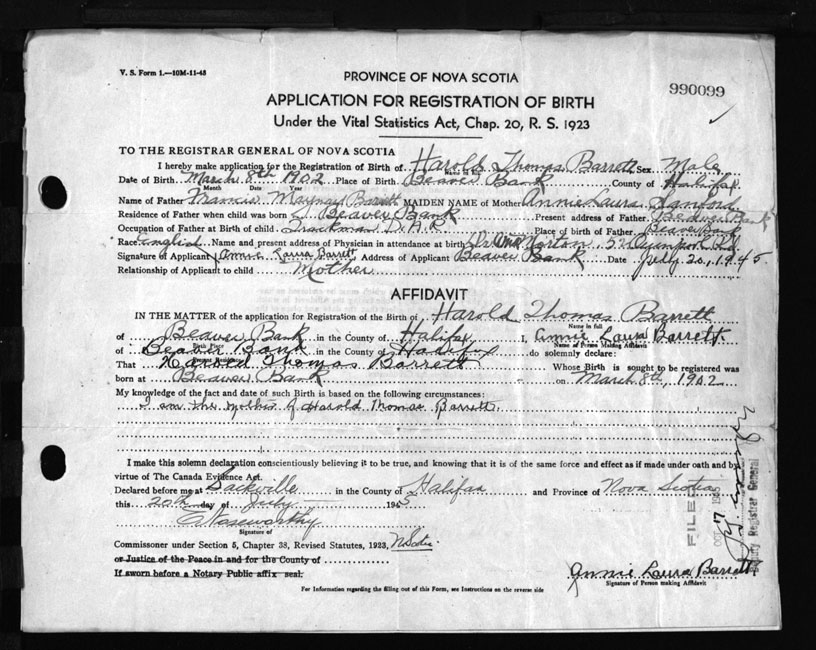 V. S. Form 1.—10M-11-43
PROVINCE OF NOVA SCOTIA
990099
APPLICATION FOR REGISTRATION OF BIRTH
Under the Vital Statistics Act, Chap. 20, R. S. 1923
TO THE REGISTRAR GENERAL OF NOVA SCOTIA
I hereby make application for the Registration of Birth of Harold Thomas Barrett Sex Male
Date of Birth March 8th 1902 Place of Birth Beaver Bank County of Halifax
Month Date Year
Name of Father Maynard Barrett MAIDEN NAME of Mother Annie Laura
Residence of Father when child was born Beaver Bank Present address of Father Beaver Bank
Occupation of Father at Birth of child. Trackman D.A.R. Place of birth of Father Beaver Bank
Race English Name and present address of Physician in attendance at birth Dr. Norton
Signature of Applicant Annie Laura Barrett Address of Applicant Beaver Bank Date July 20, 1945
Relationship of Applicant to child Mother
AFFIDAVIT
IN THE MATTER of the application for Registration of the Birth of Harold Thomas Barrett
Name in full
of Beaver Bank in the County of Halifax I, Annie Laura Barrett
Birth Place Name of Person Making Affidavit
of Beaver Bank in the County of Halifax do solemnly declare:
That Harold Thomas Barrett Whose Birth is sought to be registered was
born at Beaver Bank on March 8th, 1902
My knowledge of the fact and date of such Birth is based on the following circumstances:
I am the mother of Harold Thomas Barrett.
I make this solemn declaration conscientiously believing it to be true, and knowing that it is of the same force and effect as if made under oath and by
virtue of The Canada Evidence Act.
Declared before me at Sackville in the County of Halifax and Province of Nova Scotia
this 20th day of July 1945
Noseworthy
Signature of
Commissioner under Section 5, Chapter 38, Revised Statutes, 1923, N Scotia
or Justice of the Peace in and for the County of
If sworn before a Notary Public affix seal.
Annie Laura Barrett
Signature of Person making Affidavit
For Information regarding the filling out of this Form, see Instructions on the reverse side
FILED
Deputy Registrar General